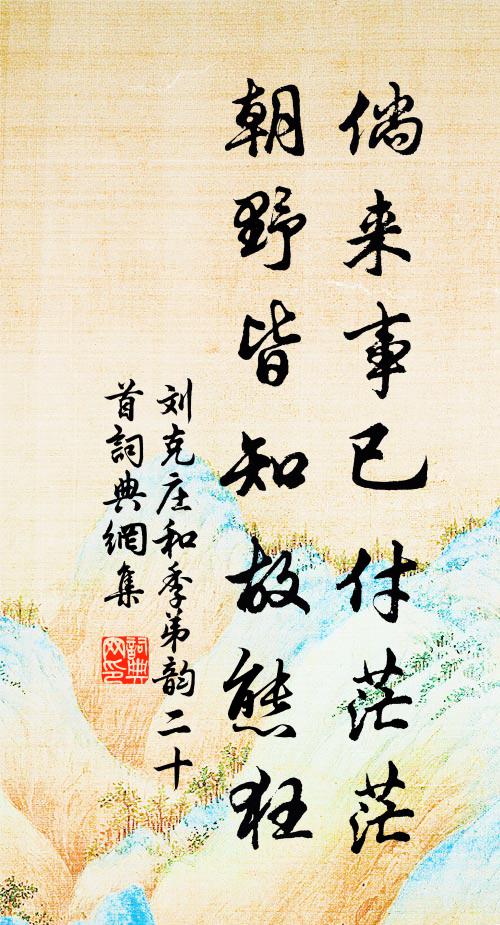 倘来事已付茫茫
朝野皆知故態狂
刘克庄和季弟韵二十
首詞典網集
詞典网印